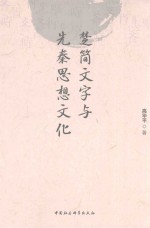 楚简文字与
先秦思想文化
高华平 著
中国社会科学出版社